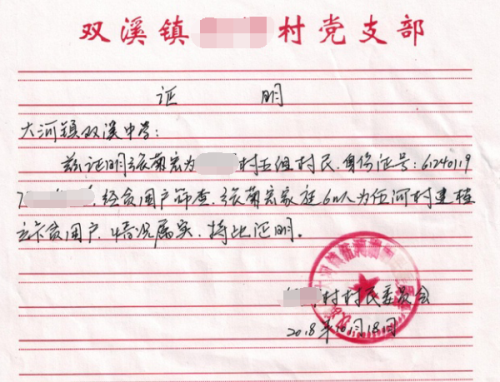 双溪镇 村党支部
证 明
大河镇双溪中学:
兹证明张菊宏为 村五组村民,身份证号:61240119
7 经贫困户筛查,张菊宏家庭6口人为 河村建档
立卡贫困户,情况属实,特此证明。
村村民委员会
2018年10月18日